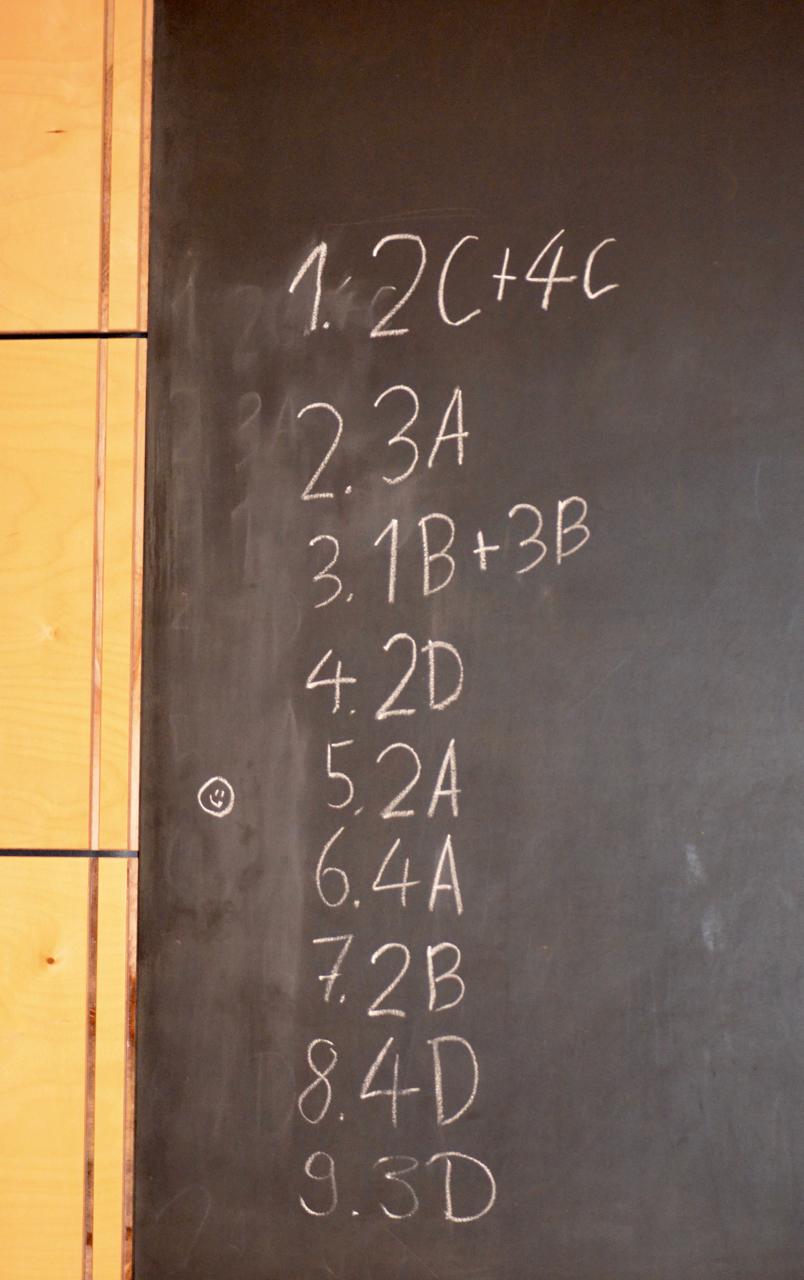 1. 2C+4C
2. 3A
3. 1B+3B
4. 2D
5. 2A
6. 4A
7. 2B
8. 4D
9. 3D